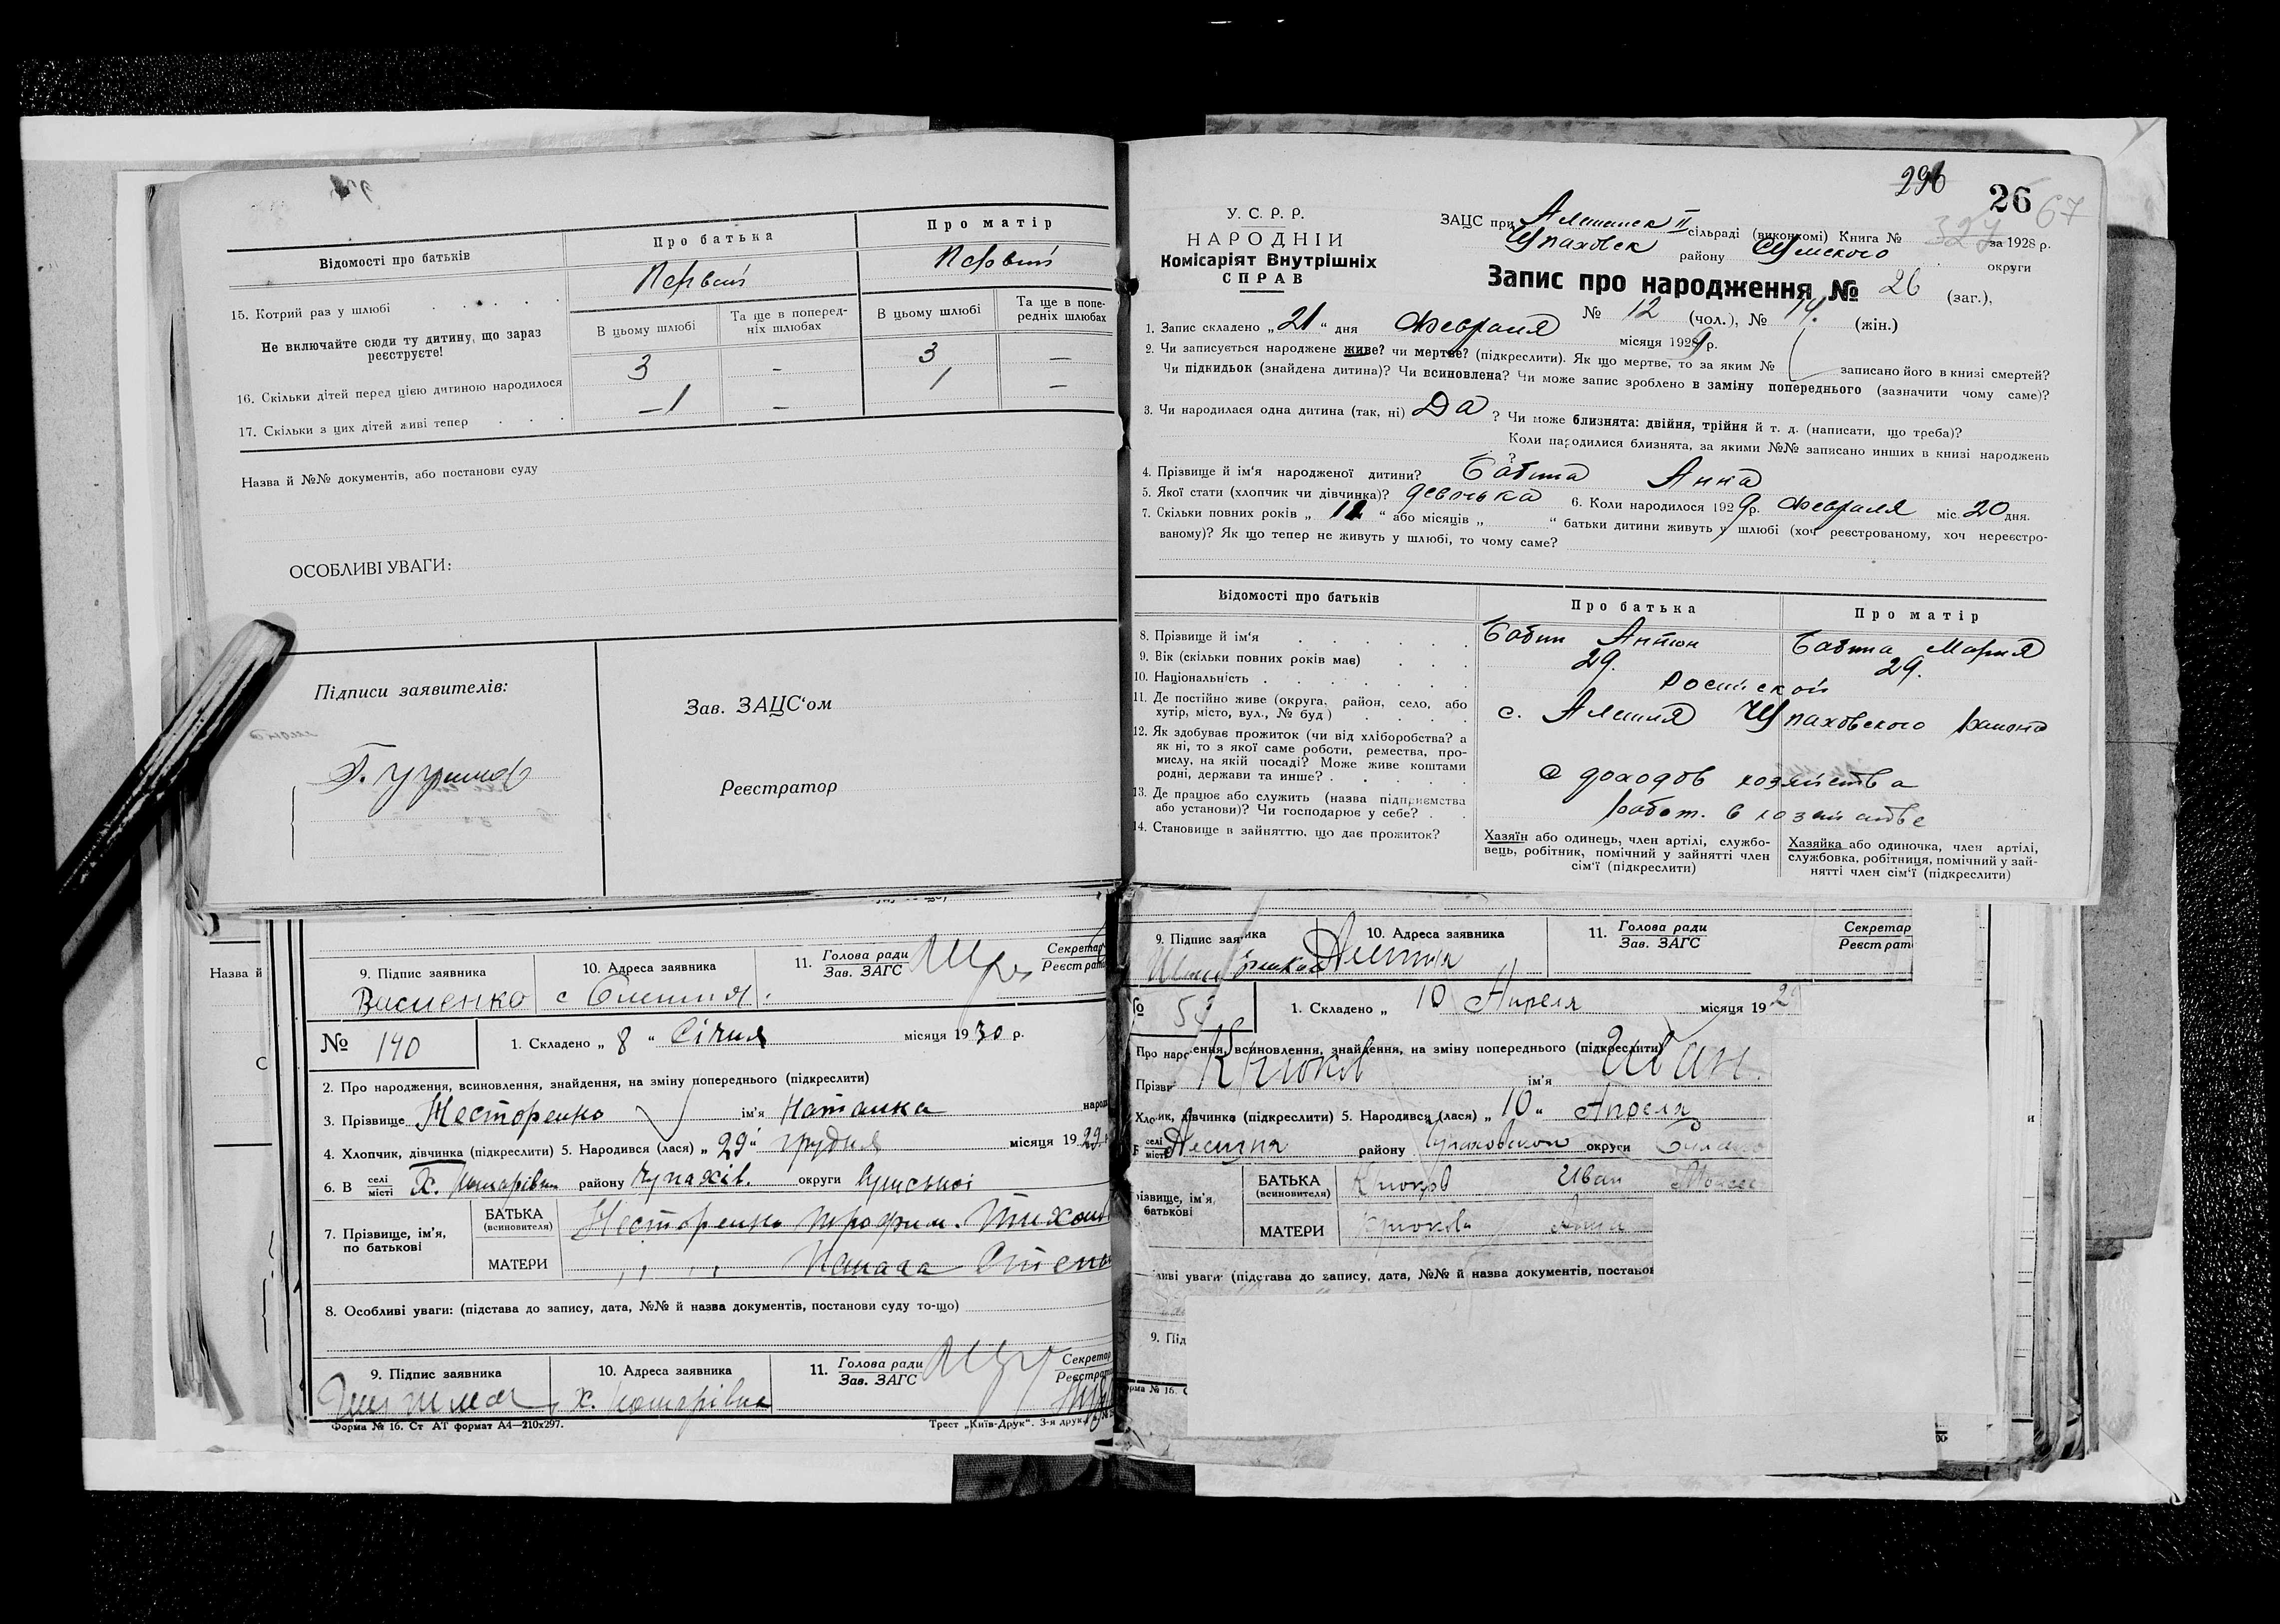 Відомості про батьків
Про батька
Про матір
Первый
Первый
15. Котрий раз у шлюбі
Не включайте сюди ту дитину, що зараз реєструєте!
В цьому шлюбі
Та ще в поперед-
ніх шлюбах
В цьому шлюбі
Та ще в попе-
редніх шлюбах
16. Скільки дітей перед цією дитиною народилося
3 - 3 —
17. Скільки з цих дітей живі тепер
—1 — 1 —
Назва й №№ документів, або постанови суду
ОСОБЛИВІ УВАГИ:
Підписи заявителів:
Зав. ЗАЦС‘ом
Реєстратор
Назва й
9. Підпис заявника
10. Адреса заявника
11. Голова ради
Зав. ЗАГС
Секретар
Реєстрат
Василенко
№ 140
1. Складено „ 8 “ Січня місяця 1930 р.
2. Про народження, всиновлення, знайдення, на зміну попереднього (підкреслити)
3. Прізвище Несторенко ім'я Наталка народ
4. Хлопчик, дівчинка (підкреслити) 5. Народився (лася) „ 29 “ грудня місяця 1929
6. В селі
місті Х. Комарівка району Чупахів. округи Сумської
7. Прізвище, ім'я,
по батькові
БАТЬКА
(всиновителя)
Несторенко Трофим Тихон
МАТЕРИ
„ „
8. Особливі уваги: (підстава до запису, дата, №№ й назва документів, постанови суду то-що)
9. Підпис заявника
10. Адреса заявника
11. Голова ради
Зав. ЗАГС
Секретар
Реєстрат
х. Комарівка
Форма № 16. Ст АТ формат А4—210х297.
Трест „Київ-Друк“. 3-я друк.
296
26
67
327
У. С. Р. Р.
НАРОДНІЙ
Комісаріят Внутрішніх
СПРАВ
ЗАЦС при Алешинск II сільраді (виконкомі) Книга № за 1928 р.
Чупаховск району Сумского округи
Запис про народження № 26 (заг.),
№ 12 (чол.), № 14. (жін.)
1. Запис складено „ 21 “ дня Февраля місяця 1929 р.
2. Чи записується народжене живе? чи мертве? (підкреслити). Як що мертве, то за яким № записано його в книзі смертей?
Чи підкидьок (знайдена дитина)? Чи всиновлена? Чи може запис зроблено в заміну попереднього (зазначити чому саме)?
3. Чи народилася одна дитина (так, ні) Да ? Чи може близнята: двійня, трійня й т. д. (написати, що треба)?
Коли народилися близнята, за якими №№ записано инших в книзі народжень
?
4. Прізвище й ім'я народженої дитини? Бабина Анна
5. Якої стати (хлопчик чи дівчинка)? девочька 6. Коли народилося 1929 р. Февраля міс. 20 дня.
7. Скільки повних років „ 12 “ або місяців „ “ батьки дитини живуть у шлюбі (хоч реєстрованому, хоч нереєстро-
ваному)? Як що тепер не живуть у шлюбі, то чому саме?
Відомості про батьків
Про батька
Про матір
8. Прізвище й ім‘я Бабин Антон Бабина Мария
9. Вік (скільки повних років має) 29. 29.
10. Національність Росийской
11. Де постійно живе (округа, район, село, або
хутір, місто, вул., № буд)
с. Алешня Чупаховского района
12. Як здобуває прожиток (чи від хліборобства? а
як ні, то з якої саме роботи, ремества, про-
мислу, на якій посаді? Може живе коштами
родні, держави та инше?
С доходов хозяйства
13. Де працює або служить (назва підприємства
або установи)? Чи господарює у себе?
работ. в хозяйстве
14. Становище в зайняттю, що дає прожиток?
Хазяїн або одинець, член артілі, службо-
вець, робітник, помічний у зайнятті член
сім‘ї (підкреслити)
Хазяйка або одиночка, член артілі,
службовка, робітниця, помічний у зай-
нятті член сім‘ї (підкреслити)
9. Підпис заявника
10. Адреса заявника
11. Голова ради
Зав. ЗАГС
Секретар
Реєстрат
№ 53
1. Складено „ 10 Апреля місяця 192
Про народження, всиновлення, знайдення, на зміну попереднього (підкреслити)
Прізви Крюков ім'я Иван.
Хлопчик, дівчинка (підкреслити) 5. Народився (лася) „ 10 “ Апреля
селі
місті Алешня району Чупаховской округи
різвище, ім'я,
батькові
БАТЬКА
(всиновителя)
Крюков Иван
МАТЕРИ
Крюкова Анна
ливі уваги: (підстава до запису, дата, №№ й назва документів, постанов
9. Під